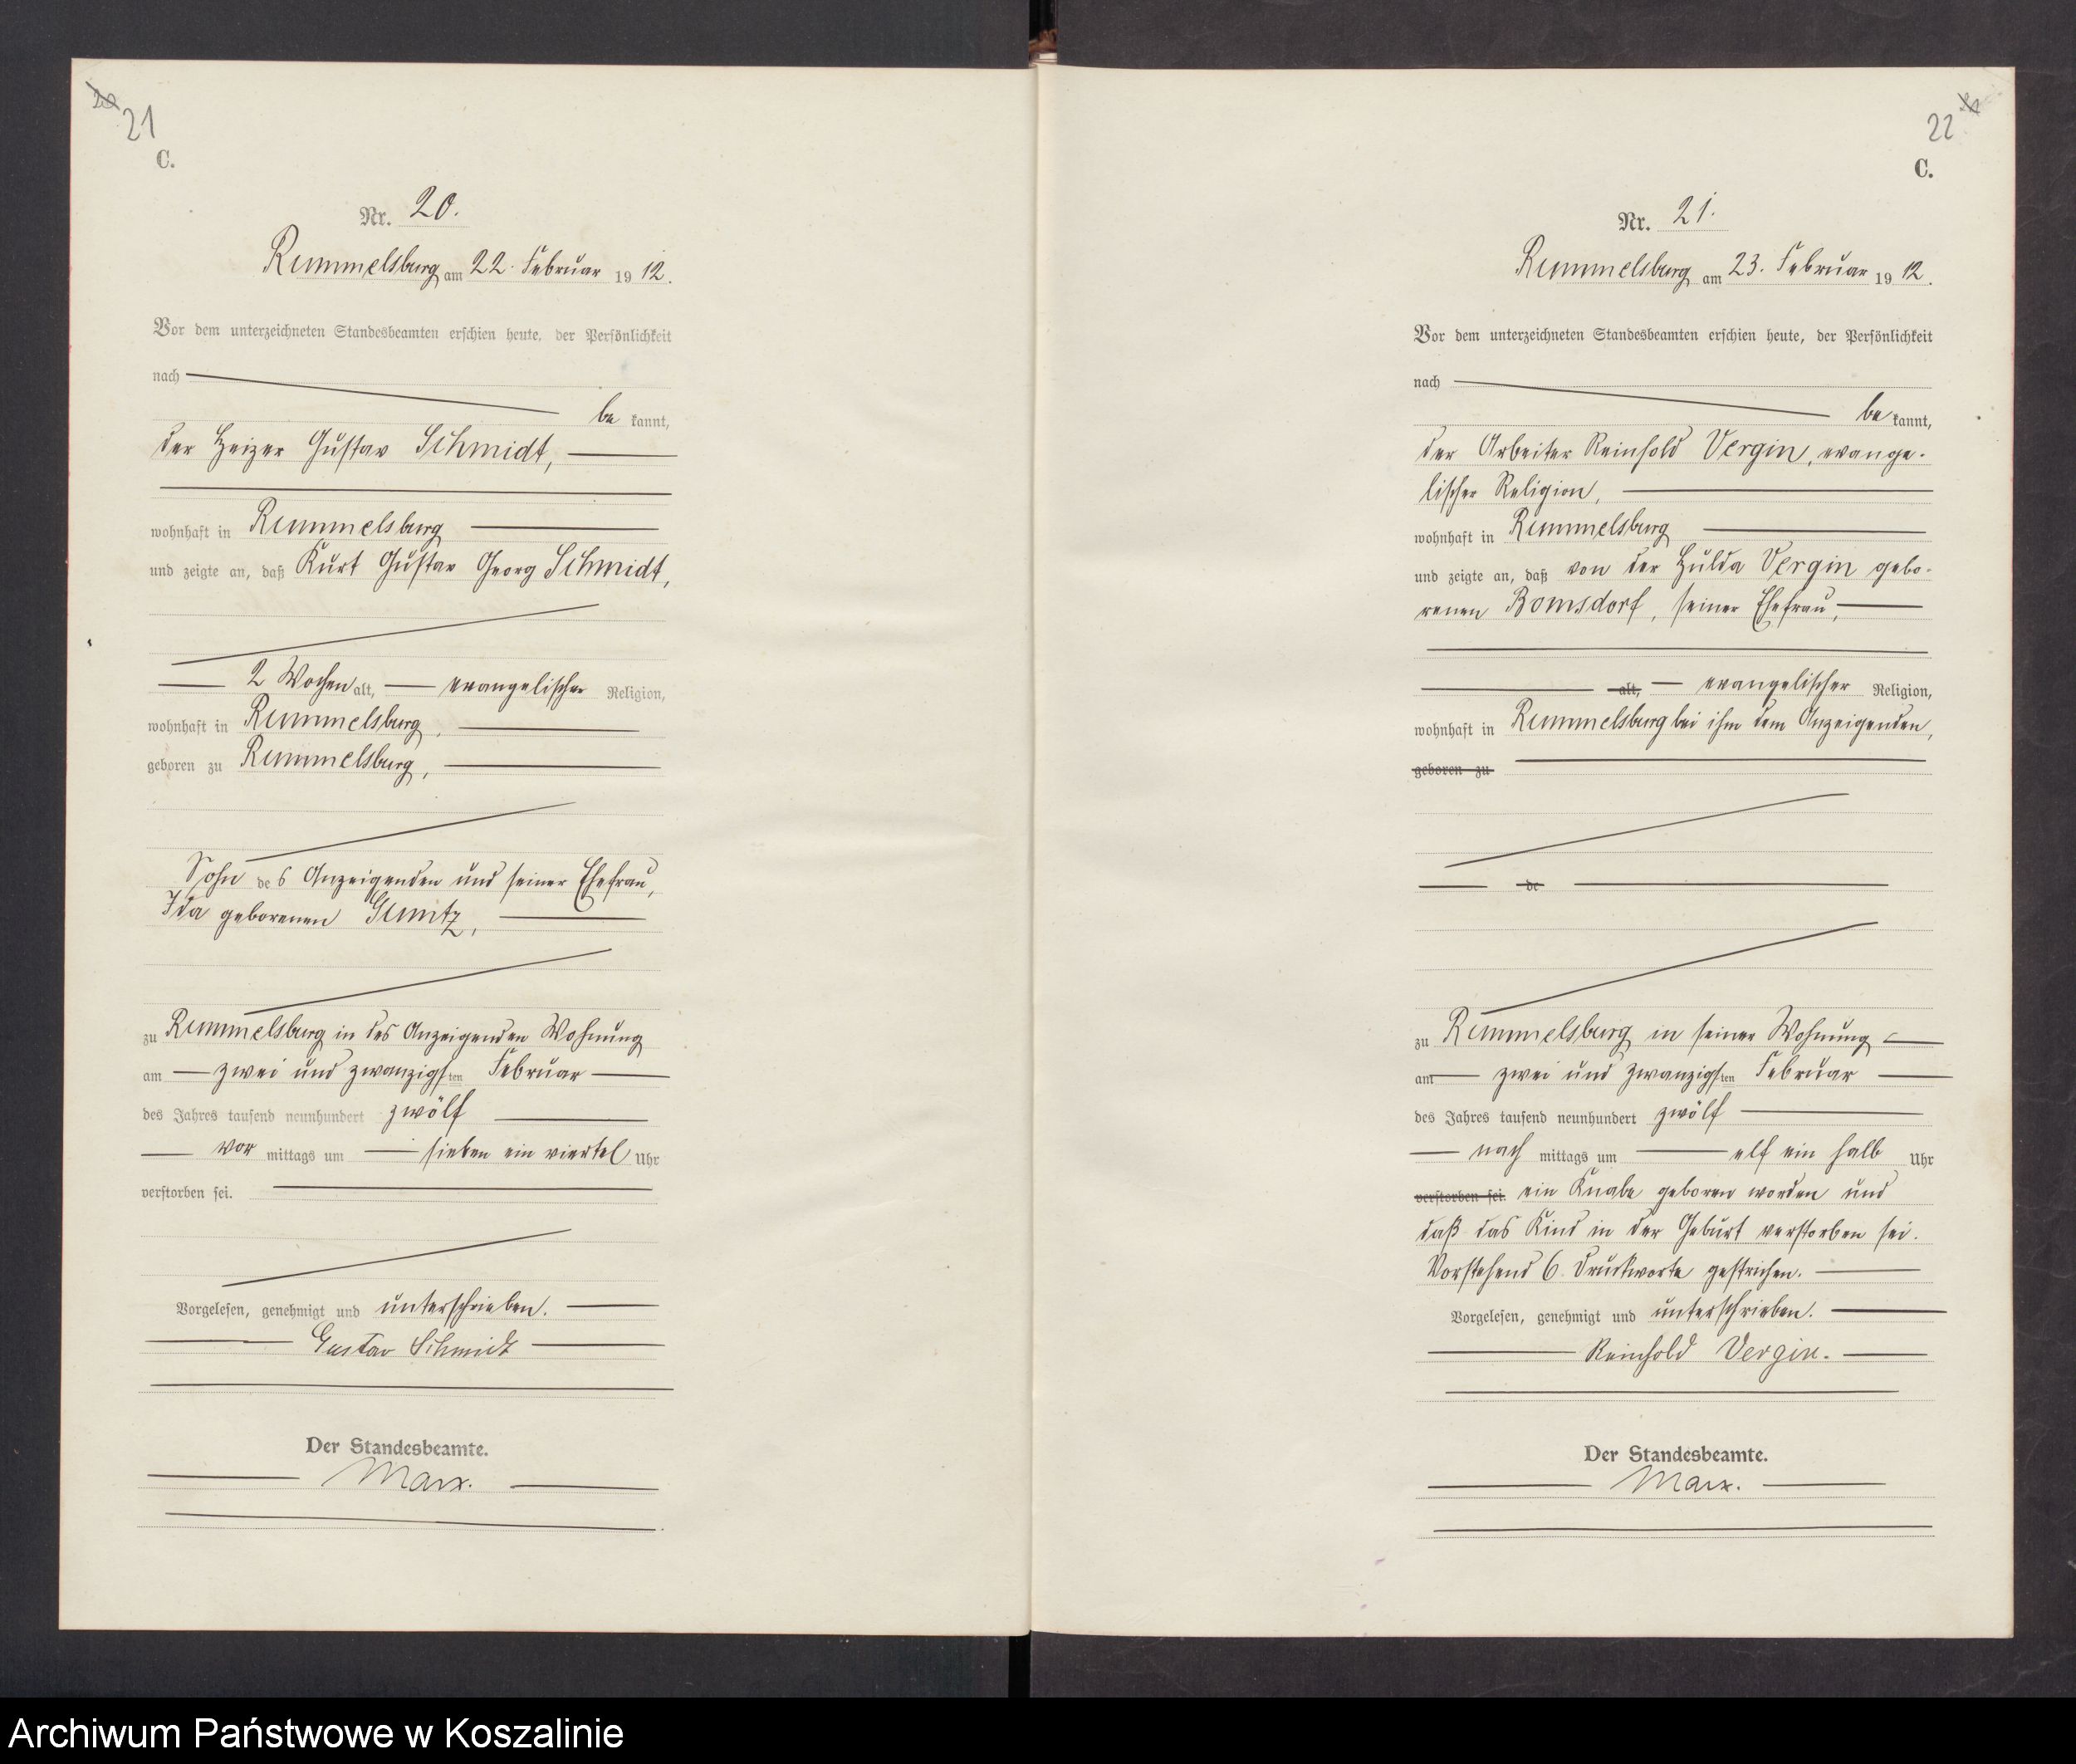 21
C.
Nr. 20.
Rummelsburg am 22. Februar 1912.
Vor dem unterzeichneten Standesbeamten erschien heute, der Persönlichkeit
nach
be kannt,
der Heizer Gustav Schmidt,
wohnhaft in Rummelsburg
und zeigte an, daß Kurt Gustav Georg Schmidt,
2 Wochen alt, evangelischer Religion,
wohnhaft in Rummelsburg,
geboren zu Rummelsburg,
Sohn des Anzeigenden und seiner Ehefrau,
Ida geborenen
zu Rummelsburg in des Anzeigenden Wohnung
am zwei und zwanzigsten Februar
des Jahres tausend neunhundert zwölf
vor mittags um sieben ein viertel Uhr
verstorben sei.
Vorgelesen, genehmigt und unterschrieben.
Gustav Schmidt
Der Standesbeamte.
Marx.
22
C.
Nr. 21.
Rummelsburg am 23. Februar 1912.
Vor dem unterzeichneten Standesbeamten erschien heute, der Persönlichkeit
nach
be kannt,
der Arbeiter Reinhold Vergin, evange-
lischer Religion,
wohnhaft in Rummelsburg
und zeigte an, daß von der Hulda Vergin gebo-
renen Bomsdorf, seiner Ehefrau,
alt, evangelischer Religion,
wohnhaft in Rummelsburg bei ihm dem Anzeigenden,
geboren zu
de
zu Rummelsburg in seiner Wohnung
am zwei und zwanzigsten Februar
des Jahres tausend neunhundert zwölf
nach mittags um elf ein halb Uhr
verstorben sei. ein Knabe geboren worden und
daß das Kind in der Geburt verstorben sei.
Vorstehend 6 Druckworte gestrichen.
Vorgelesen, genehmigt und unterschrieben.
Reinhold Vergin.
Der Standesbeamte.
Marx.
Archiwum Państwowe w Koszalinie